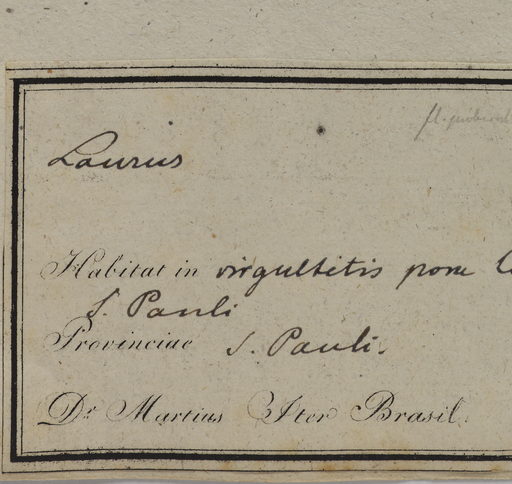 Laurus
Habitat in virgultetis pone
S. Pauli
Provinciae S. Pauli.
Dr. Martius Iter Brasil.